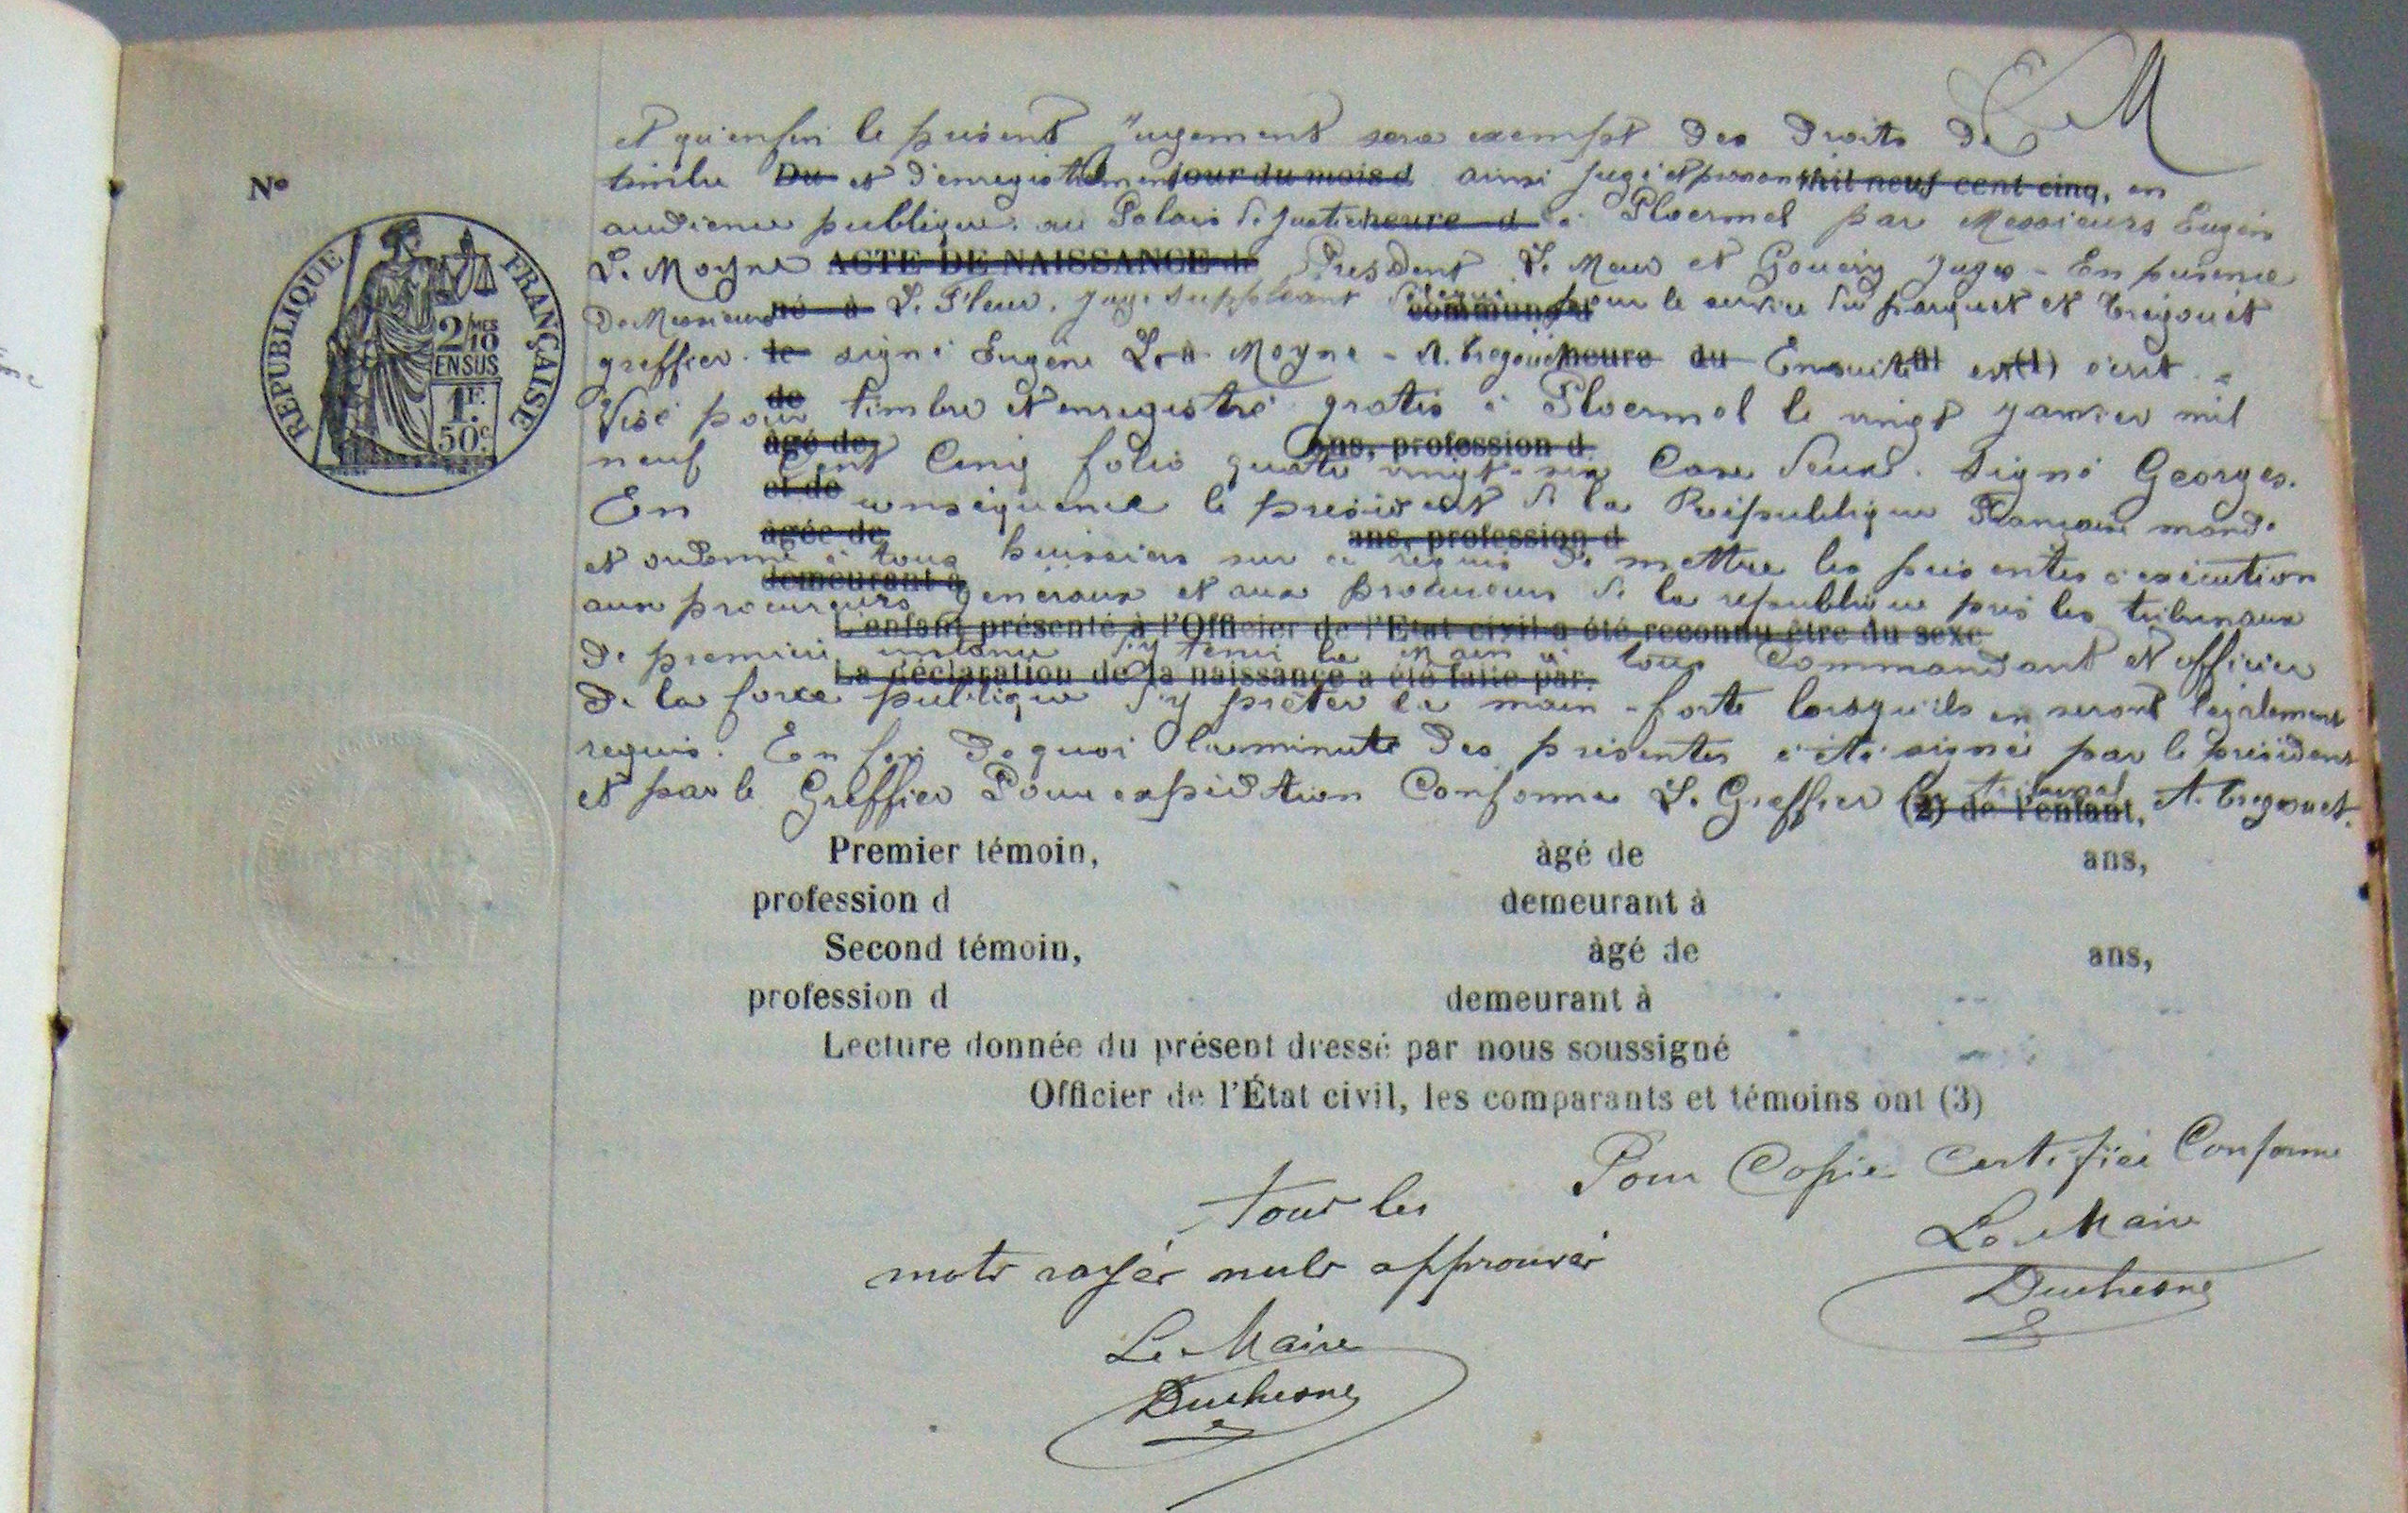 et qu'enfin le présent jugement sera exempt des droits de
N°
timbre Du et d'enregistrement jour du mois d ainsi jugé et prononcé mil neuf cent cinq, en
audience publique au Palais de justice heure d à Ploermel par Messieurs Eugène
Le Moyne ACTE DE NAISSANCE de Président Le Meur et Gouery juges - En présence
De Messieurs né à Le Fleur, juge suppléant commune d pour le service du parquet et Trégouët
greffier. le signé Eugène Le Moyne - A. Tregouët heure du Ensuite est (1) écrit.
de
Visé pour timbre et enregistré gratis à Ploermel le vingt janvier mil
âgé de ans, profession d
neuf Cent Cinq folio quatre vingt-six Case deux. Signé Georges.
et de
En conséquence le président de la République Française mande
âgée de ans, profession d
et ordonne à tous huissiers sur ce requis de mettre les présentes à exécution
demeurant à
aux procureurs généraux et aux procureurs de la république près les tribunaux
L'enfant présenté à l'Officier de l'Etat civil a été reconnu être du sexe
De première instance d'y tenir la main à tous Commandant et officier
La déclaration de la naissance a été faite par.
De la force publique d'y prêter la main-forte lorsqu'ils en seront légalement
requis. En foi de quoi la minute des présentes a été signée par le président
et par le Greffier Pour expédition Conforme Le Greffier du tribunal (2) de l'enfant, A. Tregouet.
REPUBLIQUE FRANÇAISE
2/10 MES
EN SUS
1F.
50c.
Premier témoin, âgé de ans,
profession d demeurant à
Second témoin, âgé de ans,
profession d demeurant à
Lecture donnée du présent dressé par nous soussigné
Officier de l'État civil, les comparants et témoins ont (3)
Pour Copie Certifiée Conforme
Le Maire
Duchesne
tous les
mots rayés nuls approuvés
Le Maire
Duchesne